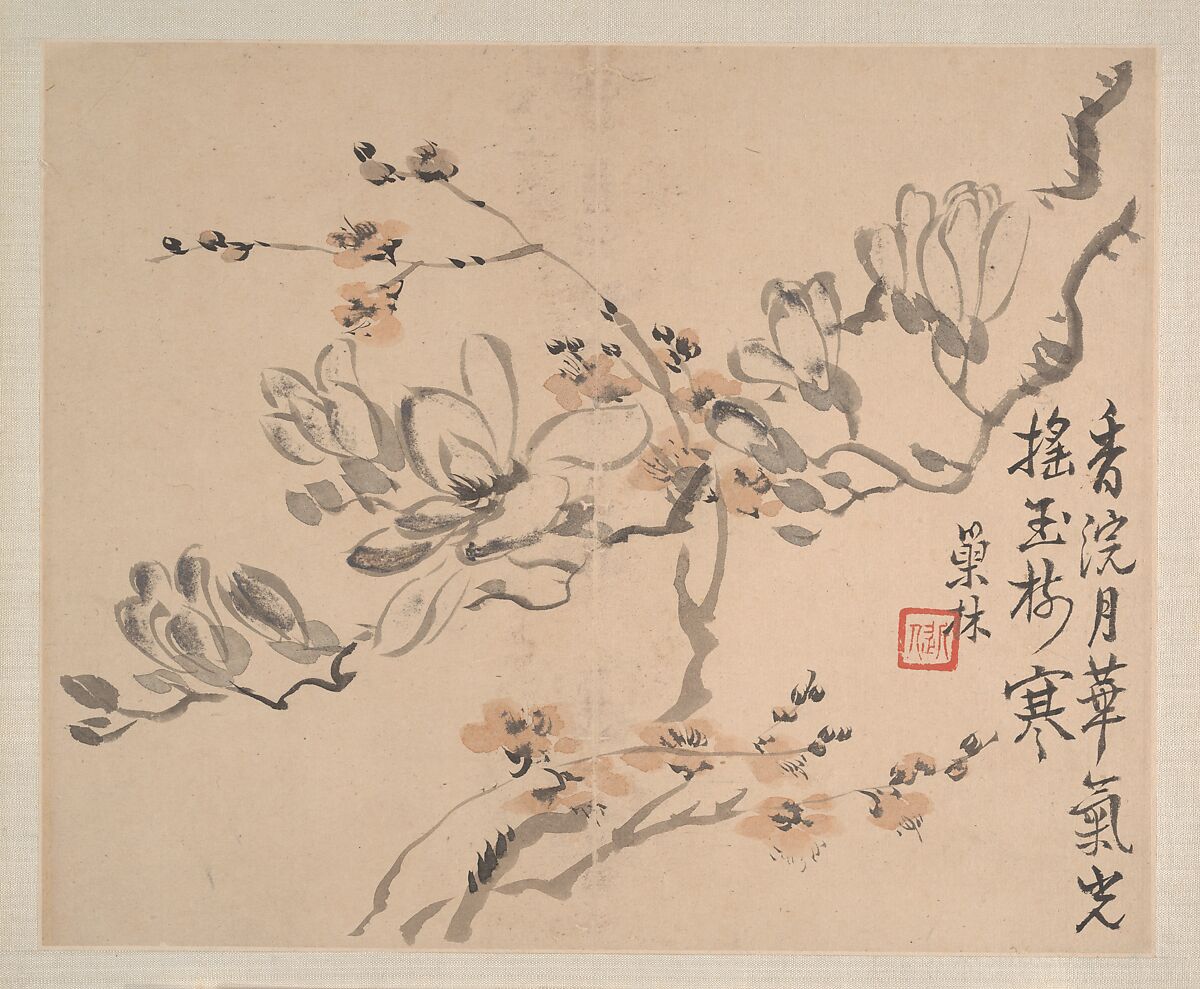 香浣月華氣光
搖玉樹寒
巢林
近人